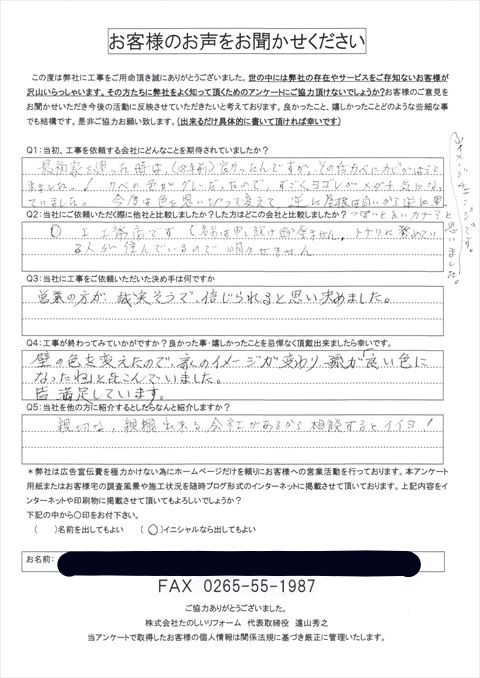 お客様のお声をお聞かせください
この度は弊社に工事をご用命頂き誠にありがとうございました。世の中には弊社の存在やサービスをご存知ないお客様が
沢山いらっしゃいます。その方たちに弊社をよく知って頂くためのアンケートにご協力頂けないでしょうか?お客様のご意見を
お聞かせいただき今後の活動に反映させていただきたいと考えております。良かったこと、嬉しかったことどのような些細な事
でも結構です。是非ご協力お願い致します。(出来るだけ具体的に書いて頂ければ幸いです)
Q1:当初、工事を依頼する会社にどんなことを期待されていましたか?
最初家で思った時は、(10年前)良かったんですが、その后カベにカビがはえて
きました。! カベの色がグレーだったので、すごくヨゴレがメダチ気になっ
ていました。 今度は色を思い切って変えて、逆に屋根は白いから逆に黒
っぽいと良いカナ?と思いました。
イメージチェンジです。
Q2:当社にご依頼いただく際に他社と比較しましたか?した方はどこの会社と比較しましたか?
〇 工務店です (名前は申し訳け御座ません。トナリに務めてい
る人が住んでいるので明かせません
Q3:当社に工事をご依頼いただいた決め手は何ですか
営業の方が、誠実そうで、信じられると思い決めました。
Q4:工事が終わってみていかがですか?良かった事・嬉しかったことを忌憚なく頂戴出来ましたら幸いです。
壁の色を変えたので、家のイメージが変わり、孫が「良い色に
なったね」と喜こんでいました。
皆満足しています。
Q5:当社を他の方に紹介するとしたらなんと紹介しますか?
親切な、親頼出来る会社があるから相談するとイイヨ!
*弊社は広告宣伝費を極力かけない為にホームページだけを頼りにお客様への営業活動を行っております。本アンケート
用紙またはお客様宅の調査風景や施工状況を随時ブログ形式のインターネットに掲載させて頂いております。上記内容をイ
ンターネットや印刷物に掲載させて頂いてもよろしいでしょうか?
下記の中から〇印をお付下さい。
( )名前を出してもよい (〇)イニシャルなら出してもよい
お名前:
FAX 0265-55-1987
ご協力ありがとうございました。
株式会社たのしいリフォーム 代表取締役 遠山秀之
当アンケートで取得したお客様の個人情報は関係法規に基づき厳正に管理いたします。